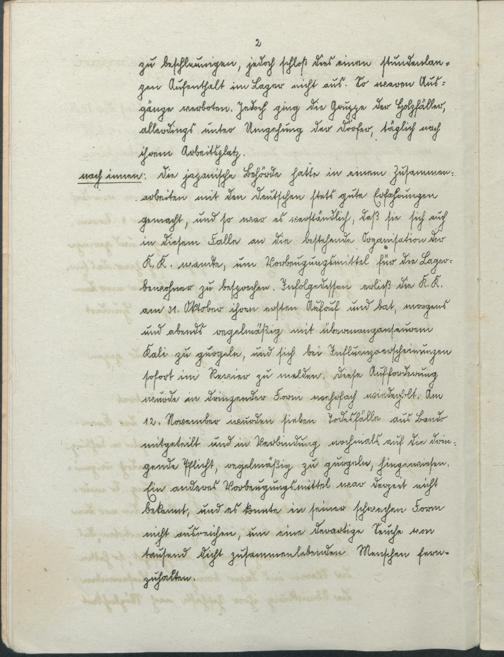 2
zu beschleunigen, jedoch schloß dies einen stundenlan-
gen Aufenthalt im Lager nicht aus. So waren Aus-
gänge verboten. Jedoch ging die Gruppe der Holzfäller,
allerdings unter Umgehung der Dörfer, täglich nach
ihrem Arbeitsplatz.
nach innen: Die japanische Behörde hatte in einem Zusammen-
arbeiten mit den deutschen stets gute Erfahrungen
gemacht, und so war es verständlich, daß sie sich auch
in diesem Falle an die bestehende Organisation der
K.K. wande, um Vorbeugungsmittel für die Lager-
bewohner zu besprechen. Infolgedessen erließ die K.K.
am 31. Oktober ihren ersten Aufruf und bat, morgens
und abends regelmäßig mit übermangansaurem
Kali zu gurgeln, und sich bei Influenzaerscheinungen
sofort im Revier zu melden. Diese Aufforderung
wurde in dringender Form mehrfach wiederholt. Am
12. November wurden sieben Todesfälle aus Bando
mitgeteilt und in Verbindung nochmals auf die drin-
gende Pflicht, regelmäßig zu gurgeln, hingewiesen.
Ein anderes Vorbeugungsmittel war derzeit nicht
bekannt, und es konnte in seiner schwachen Form
nicht ausreichen, um eine derartige Seuche von
tausend dicht zusammenlebenden Menschen fern-
zuhalten.